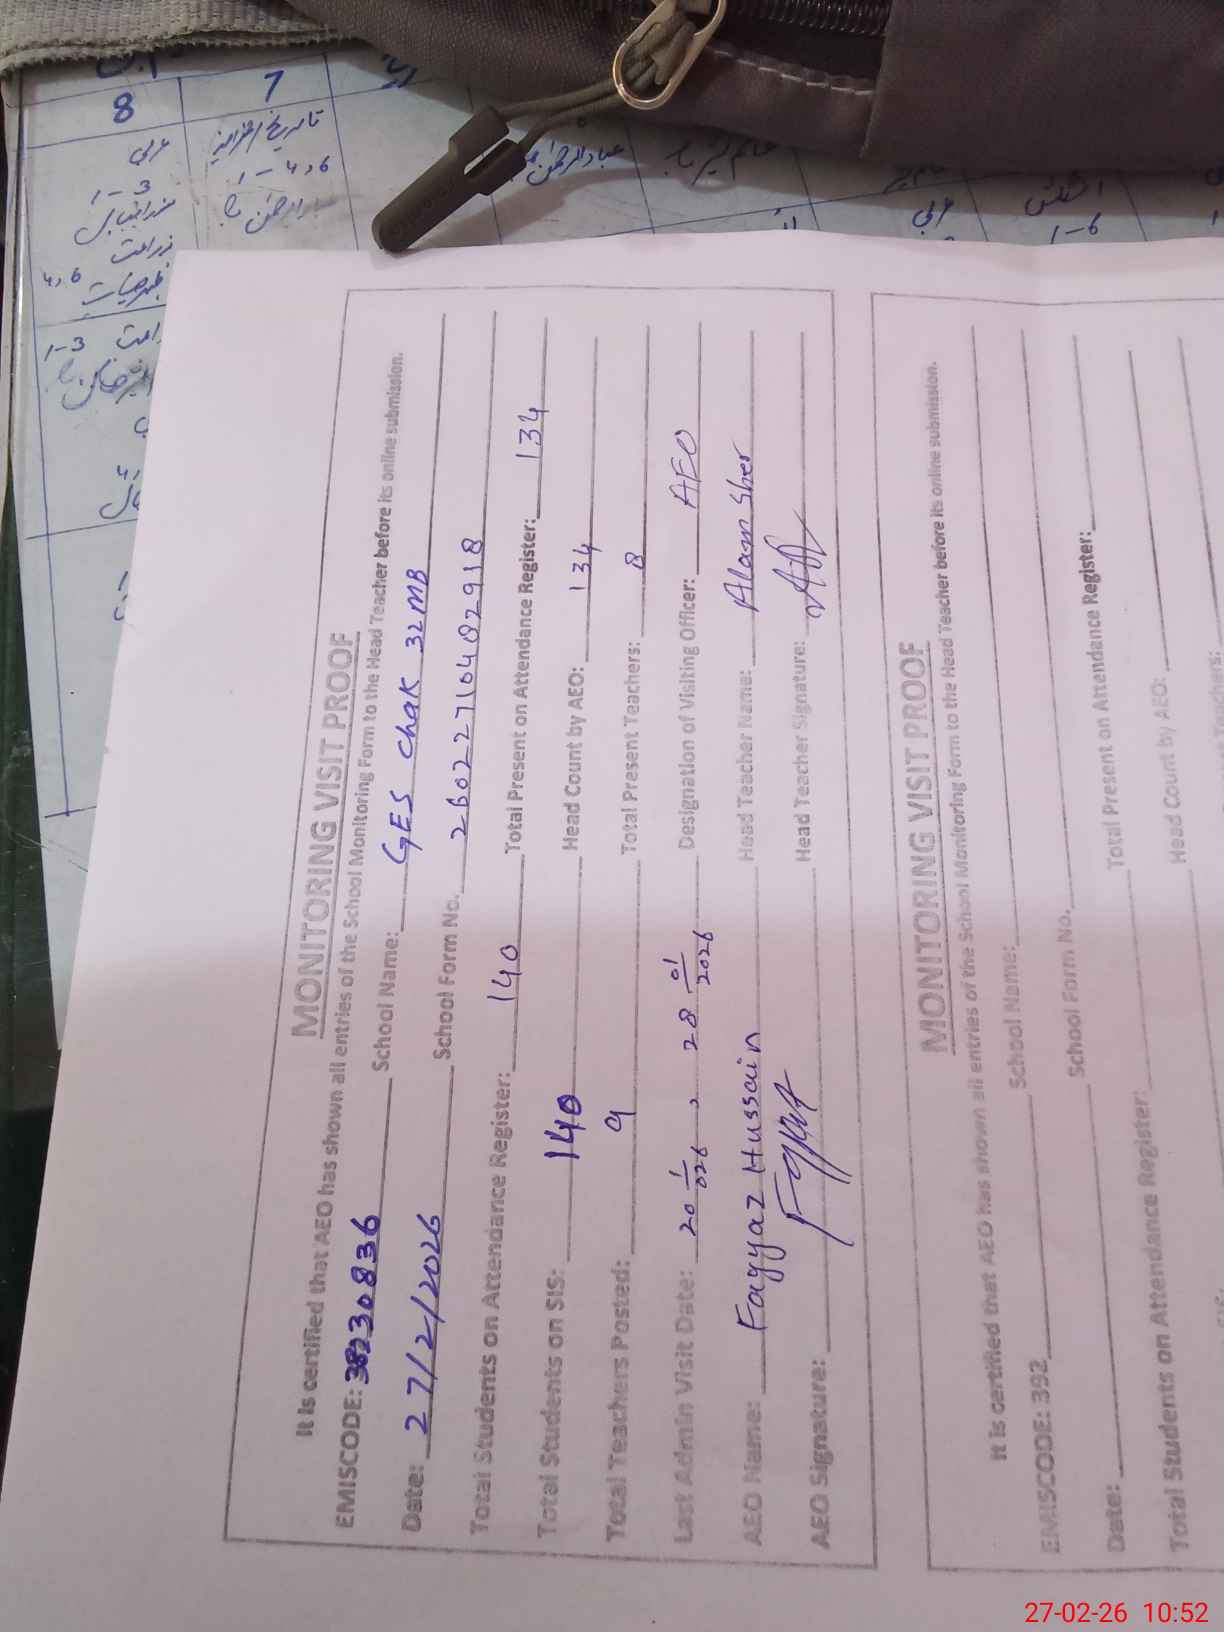 MONITORING VISIT PROOF
It is certified that AEO has shown all entries of the School Monitoring Form to the Head Teacher before its online submission.
EMISCODE: 38230836 School Name: GES Chak 32 MB
Date: 27/2/2026 School Form No. 260227104829 18
Total Students on Attendance Register: 140 Total Present on Attendance Register: 134
Total Students on SIS: 140 Head Count by AEO: 134
Total Teachers Posted: 9 Total Present Teachers: 8
Last Admin Visit Date: 20 1/026, 28 01/2026 Designation of Visiting Officer: AEO
AEO Name: Fayyaz Hussain Head Teacher Name: Alam Sher
AEO Signature: Head Teacher Signature:
MONITORING VISIT PROOF
It is certified that AEO has shown all entries of the School Monitoring Form to the Head Teacher before its online submission.
EMISCODE: 392 School Name:
Date: School Form No.
Total Students on Attendance Register: Total Present on Attendance Register:
Head Count by AEO:
8 7
عربی
1-3 1-4,6
زراعت
4,6
1-3
عربی
1-6
27-02-26 10:52